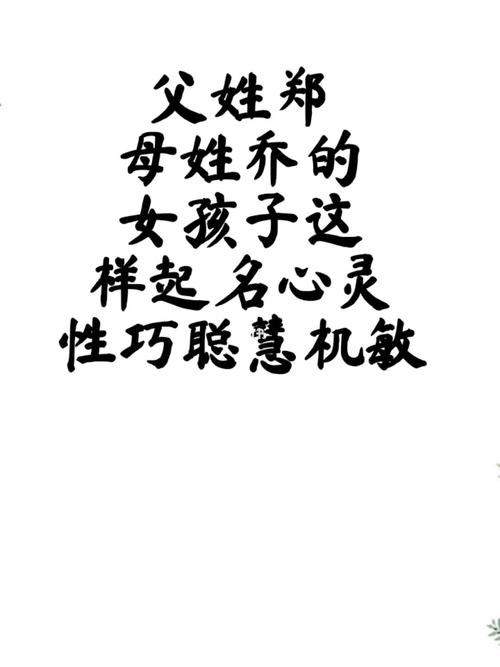 父姓郑
母姓乔的
女孩子这
样起名心灵
性巧聪慧机敏